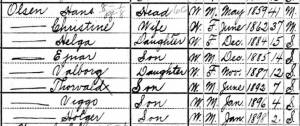 Olsen Hans Head W. M. May 1859 41 M.
— Christine Wife W. F. June 1862 37 M.
— Helga Daughter W. F. Dec. 1884 15 S.
— Ejnar Son W. M. Dec. 1885 14 S.
— Valborg Daughter W. F. Nov. 1887 12 S.
— Thorvald Son W. M. June 1892 7 S.
— Viggo Son W. M. Jan 1896 4 S.
— Holger Son W. M. Jan 1898 2 S.